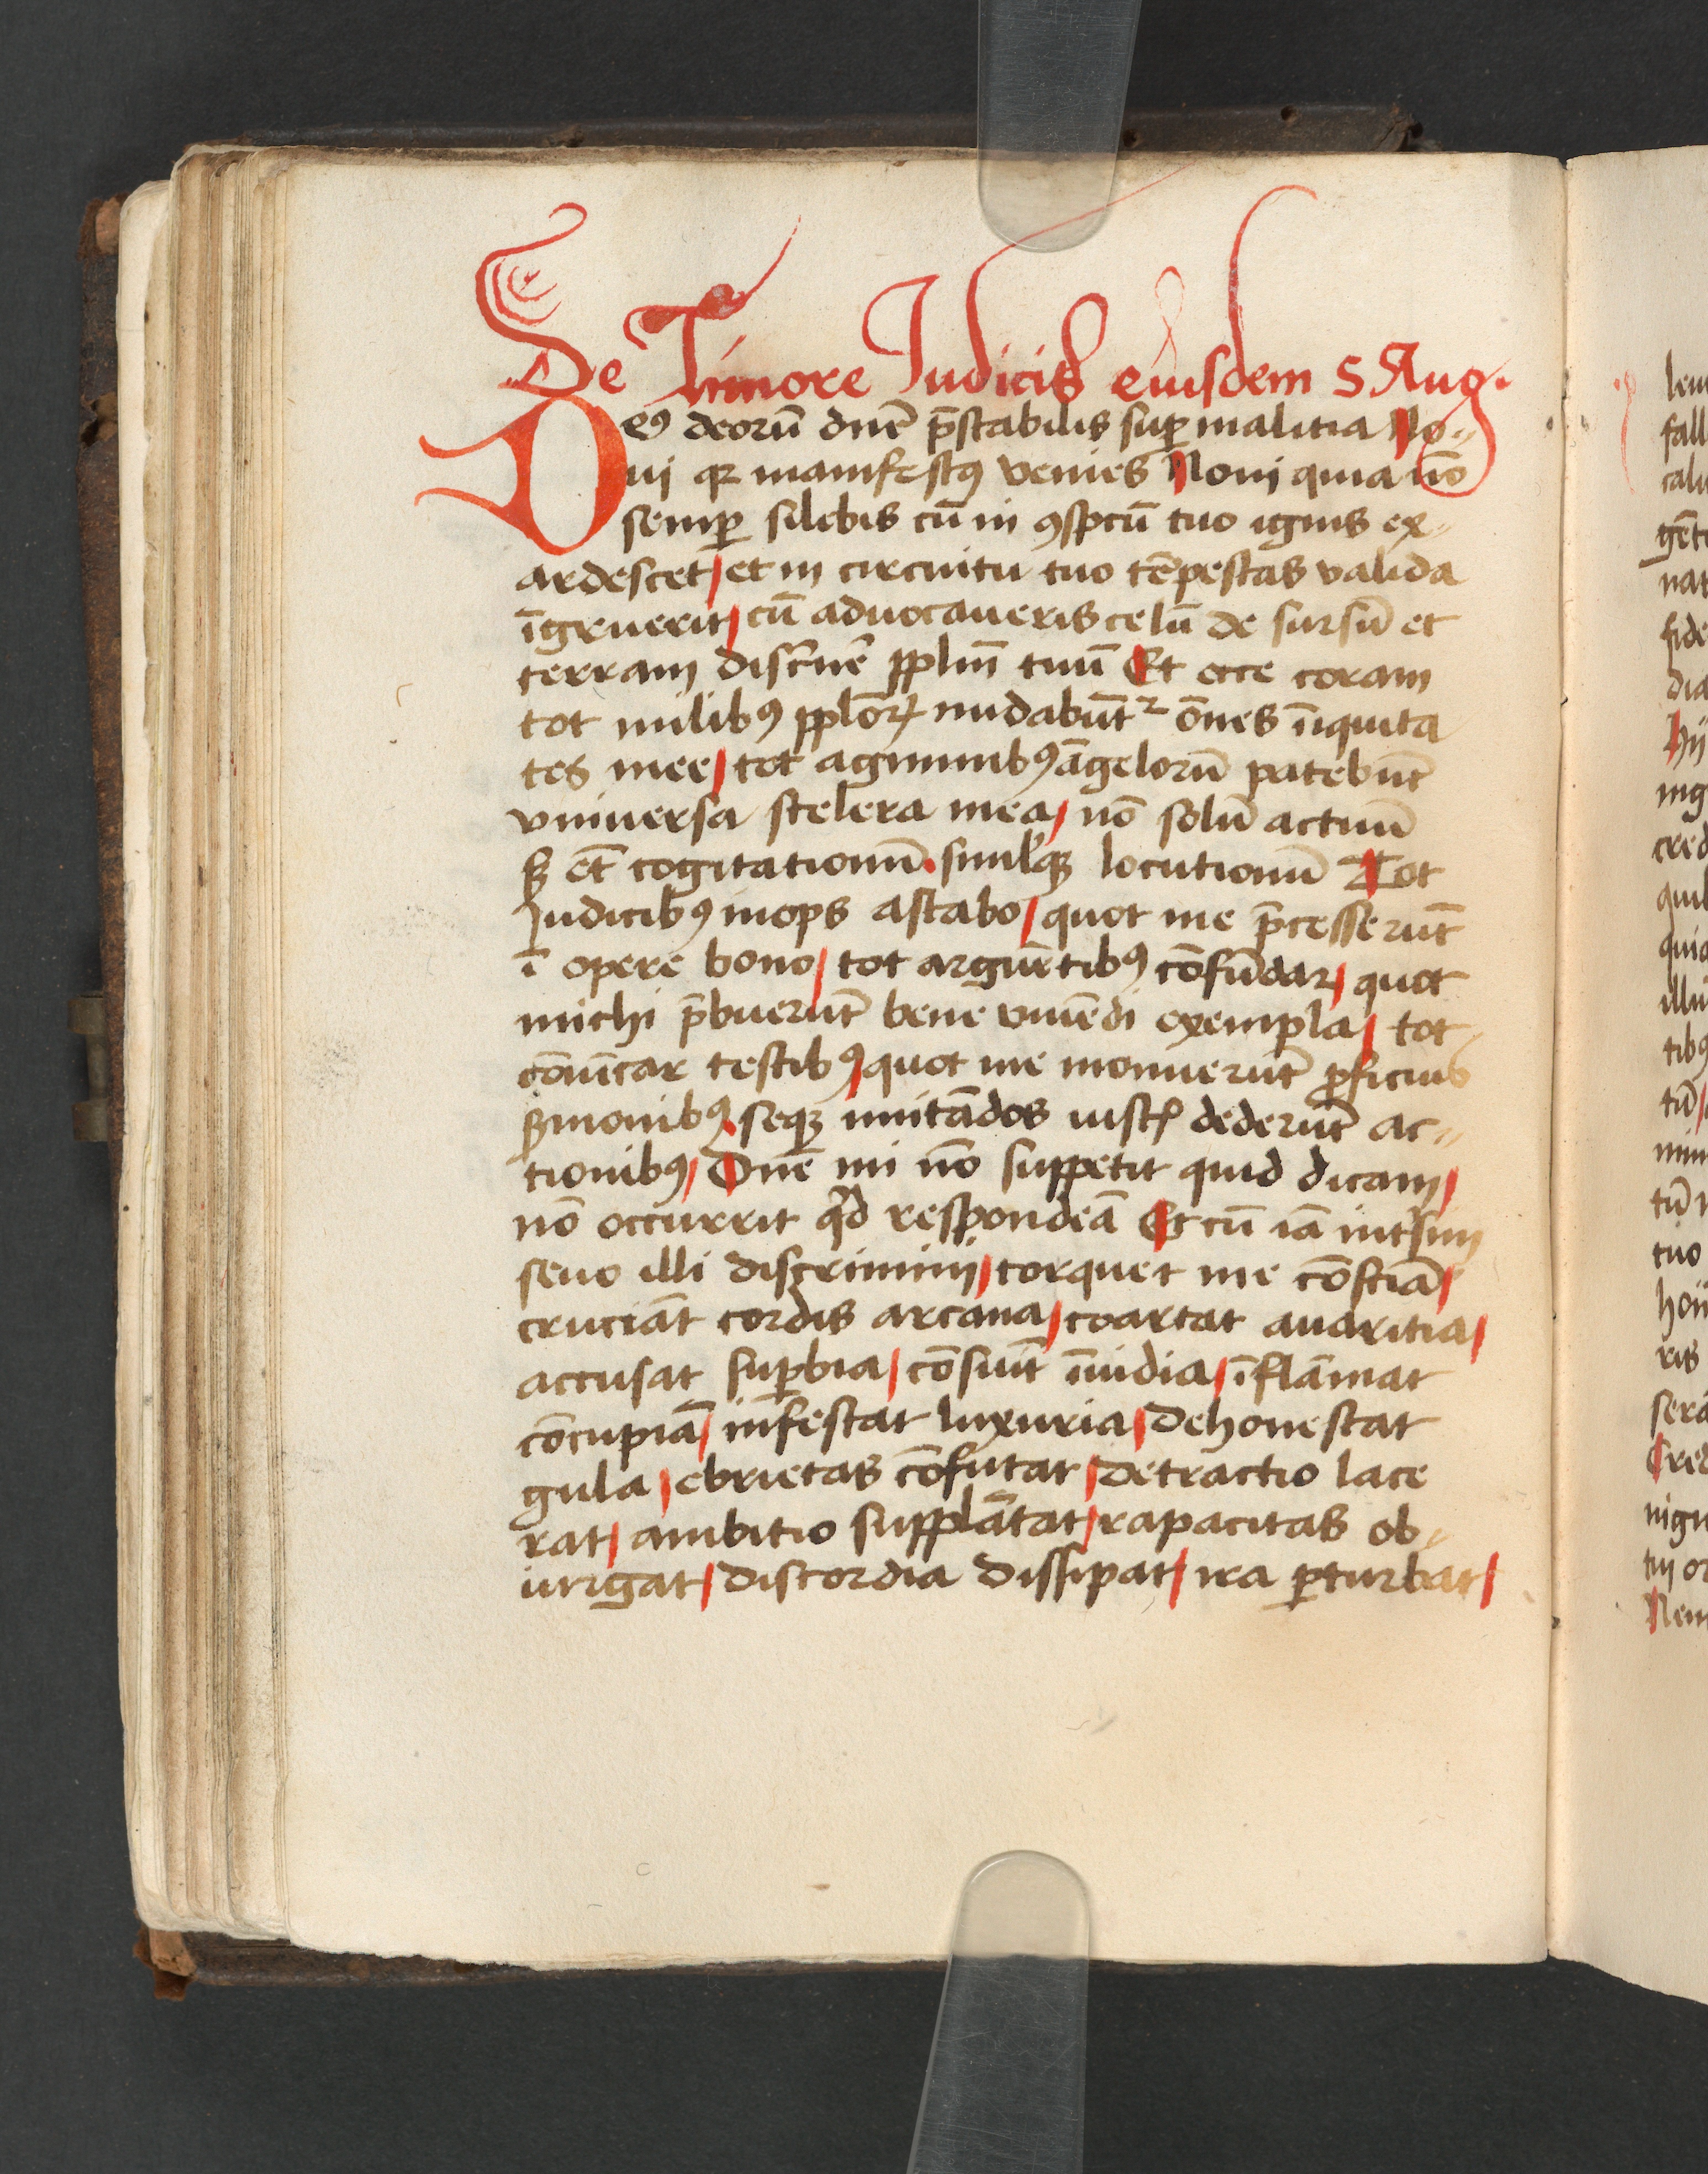 De Timore Judicis eiusdem S Aug.
Deꝯ deorū dn̄e p̄stabilis suꝑ malitia No-
ui qꝛ manifestꝯ venies Noui quia nō
semꝑ silebis cū in ꝯspc̄u tuo ignis ex-
ardescet / et in circuitu tuo tēpestas valida
īgruerit / cū aduocaueris celū de sursū et
terram disc̄nē pplm̄ tuū Et ecce coram
tot milibꝯ pplōꝝ nudabūtᷣ ōnes īiquita
tes mee / tot agminibꝯ āgelorū patebūt
vniuersa scelera mea / nō solū actuū
sꝫ et̄ cogitationū . simlꝭqꝫ locutionū Tot
Judicibꝯ inops astabo / quot me p̄cesserūt
ī opere bono / tot arguētibꝯ cōfūdar / quot
michi p̄buerūt bene viuēdi exempla / tot
cōuīcar testibꝯ / quot me monuerūt ꝓficuis
ẜmonibꝯ . seqꝫ imitādos iustꝭ dederūt ac-
tionibꝯ / Dn̄e mi nō suppetit quid dicam /
nō occurrit qͥd respondeā Et cū iā intᷣsim
seuo illi discrimini / torquet me cōsciā /
cruciāt cordis arcana / coartat auaritia /
accusat suꝑbia / cōsuīt īuidia / īflāmat
cōcupiā / infestat luxuria / dehonestat
gula / ebrietas cōfutat / detractio lace
rat / ambitio supplātat / rapacitas ob-
iurgat / discordia dissipat / ira ꝑturbat /